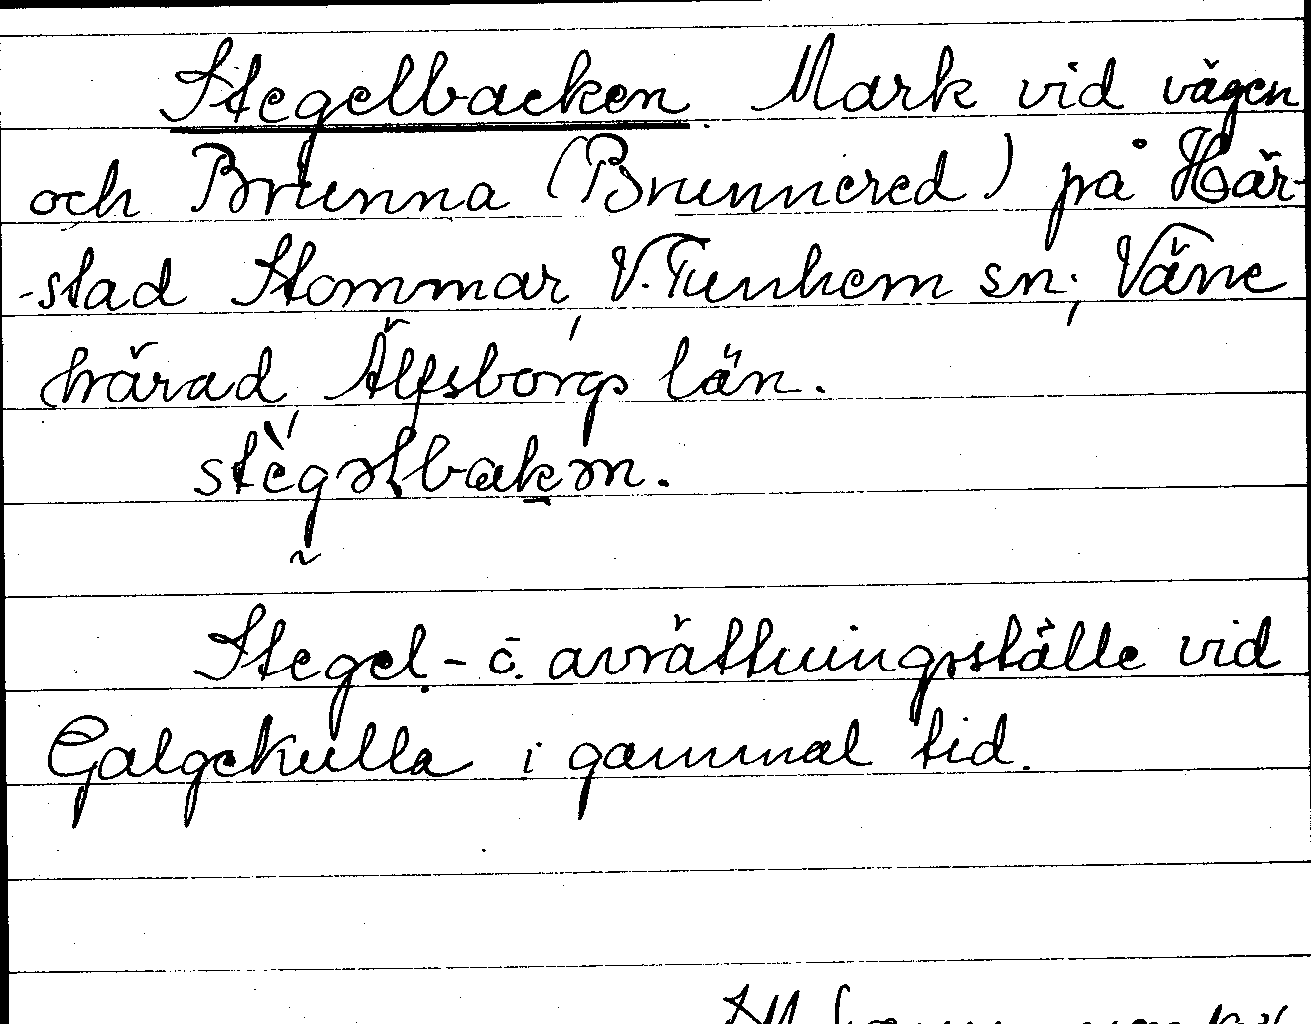 Stegelbacken. Mark vid vägen
och Brunna (Brunnered) på Här-
-stad Stommar, V. Tunhem sn; Väne
härad, Älfsborgs län.
stègəlbakən.
Stegel- o. avrättningsställe vid
Galgekulla i gammal tid.